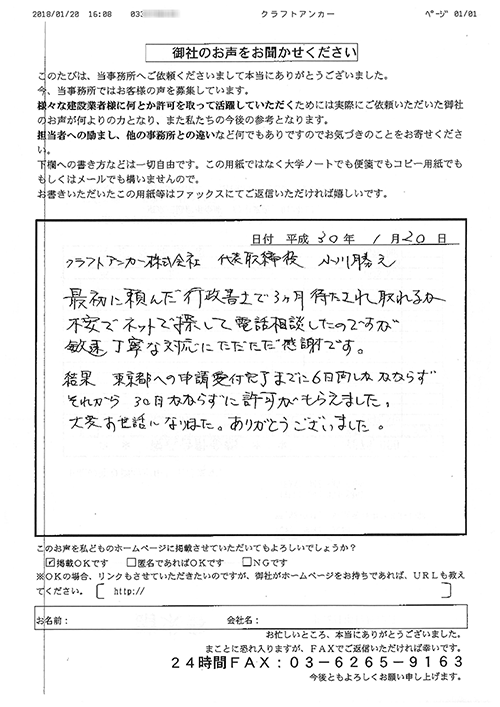 2018/01/20 16:08 クラフトアンカー ﾍﾟｰｼﾞ 01/01
御社のお声をお聞かせください
このたびは、当事務所へご依頼くださいまして本当にありがとうございました。
今、当事務所ではお客様の声を募集しています。
様々な建設業者様に何とか許可を取って活躍していただくためには実際にご依頼いただいた御社
のお声が何よりの力となり、また私たちの今後の参考となります。
担当者への励まし、他の事務所との違いなど何でもありですのでお気づきのことをお寄せくださ
い。
下欄への書き方などは一切自由です。この用紙ではなく大学ノートでも便箋でもコピー用紙でも
もしくはメールでも構いませんので。
お書きいただいたこの用紙等はファックスにてご返信いただければ嬉しいです。
日付 平成 30 年 1 月 20 日
クラフトアンカー株式会社 代表取締役 小川勝之
最初に頼んだ行政書士で3ヶ月待たされ取れるか
不安でネットで探して電話相談したのですが
敏速丁寧な対応にただただ感謝です。
結果 東京都への申請受付完了までに6日間しかかからず
それから 30日かからずに許可がもらえました。
大変お世話になりました。ありがとうございました。
このお声を私どものホームページに掲載させていただいてもよろしいでしょうか？
☑掲載ＯＫです □匿名であればＯＫです □ＮＧです
※ＯＫの場合、リンクもさせていただきたいのですが、御社がホームページをお持ちであれば、ＵＲＬも教え
てください。〔 http:// 〕
お名前： 会社名：
お忙しいところ、本当にありがとうございました。
まことに恐れ入りますが、ＦＡＸでご返信いただければ幸いです。
２４時間ＦＡＸ：０３-６２６５-９１６３
今後ともよろしくお願い申し上げます。